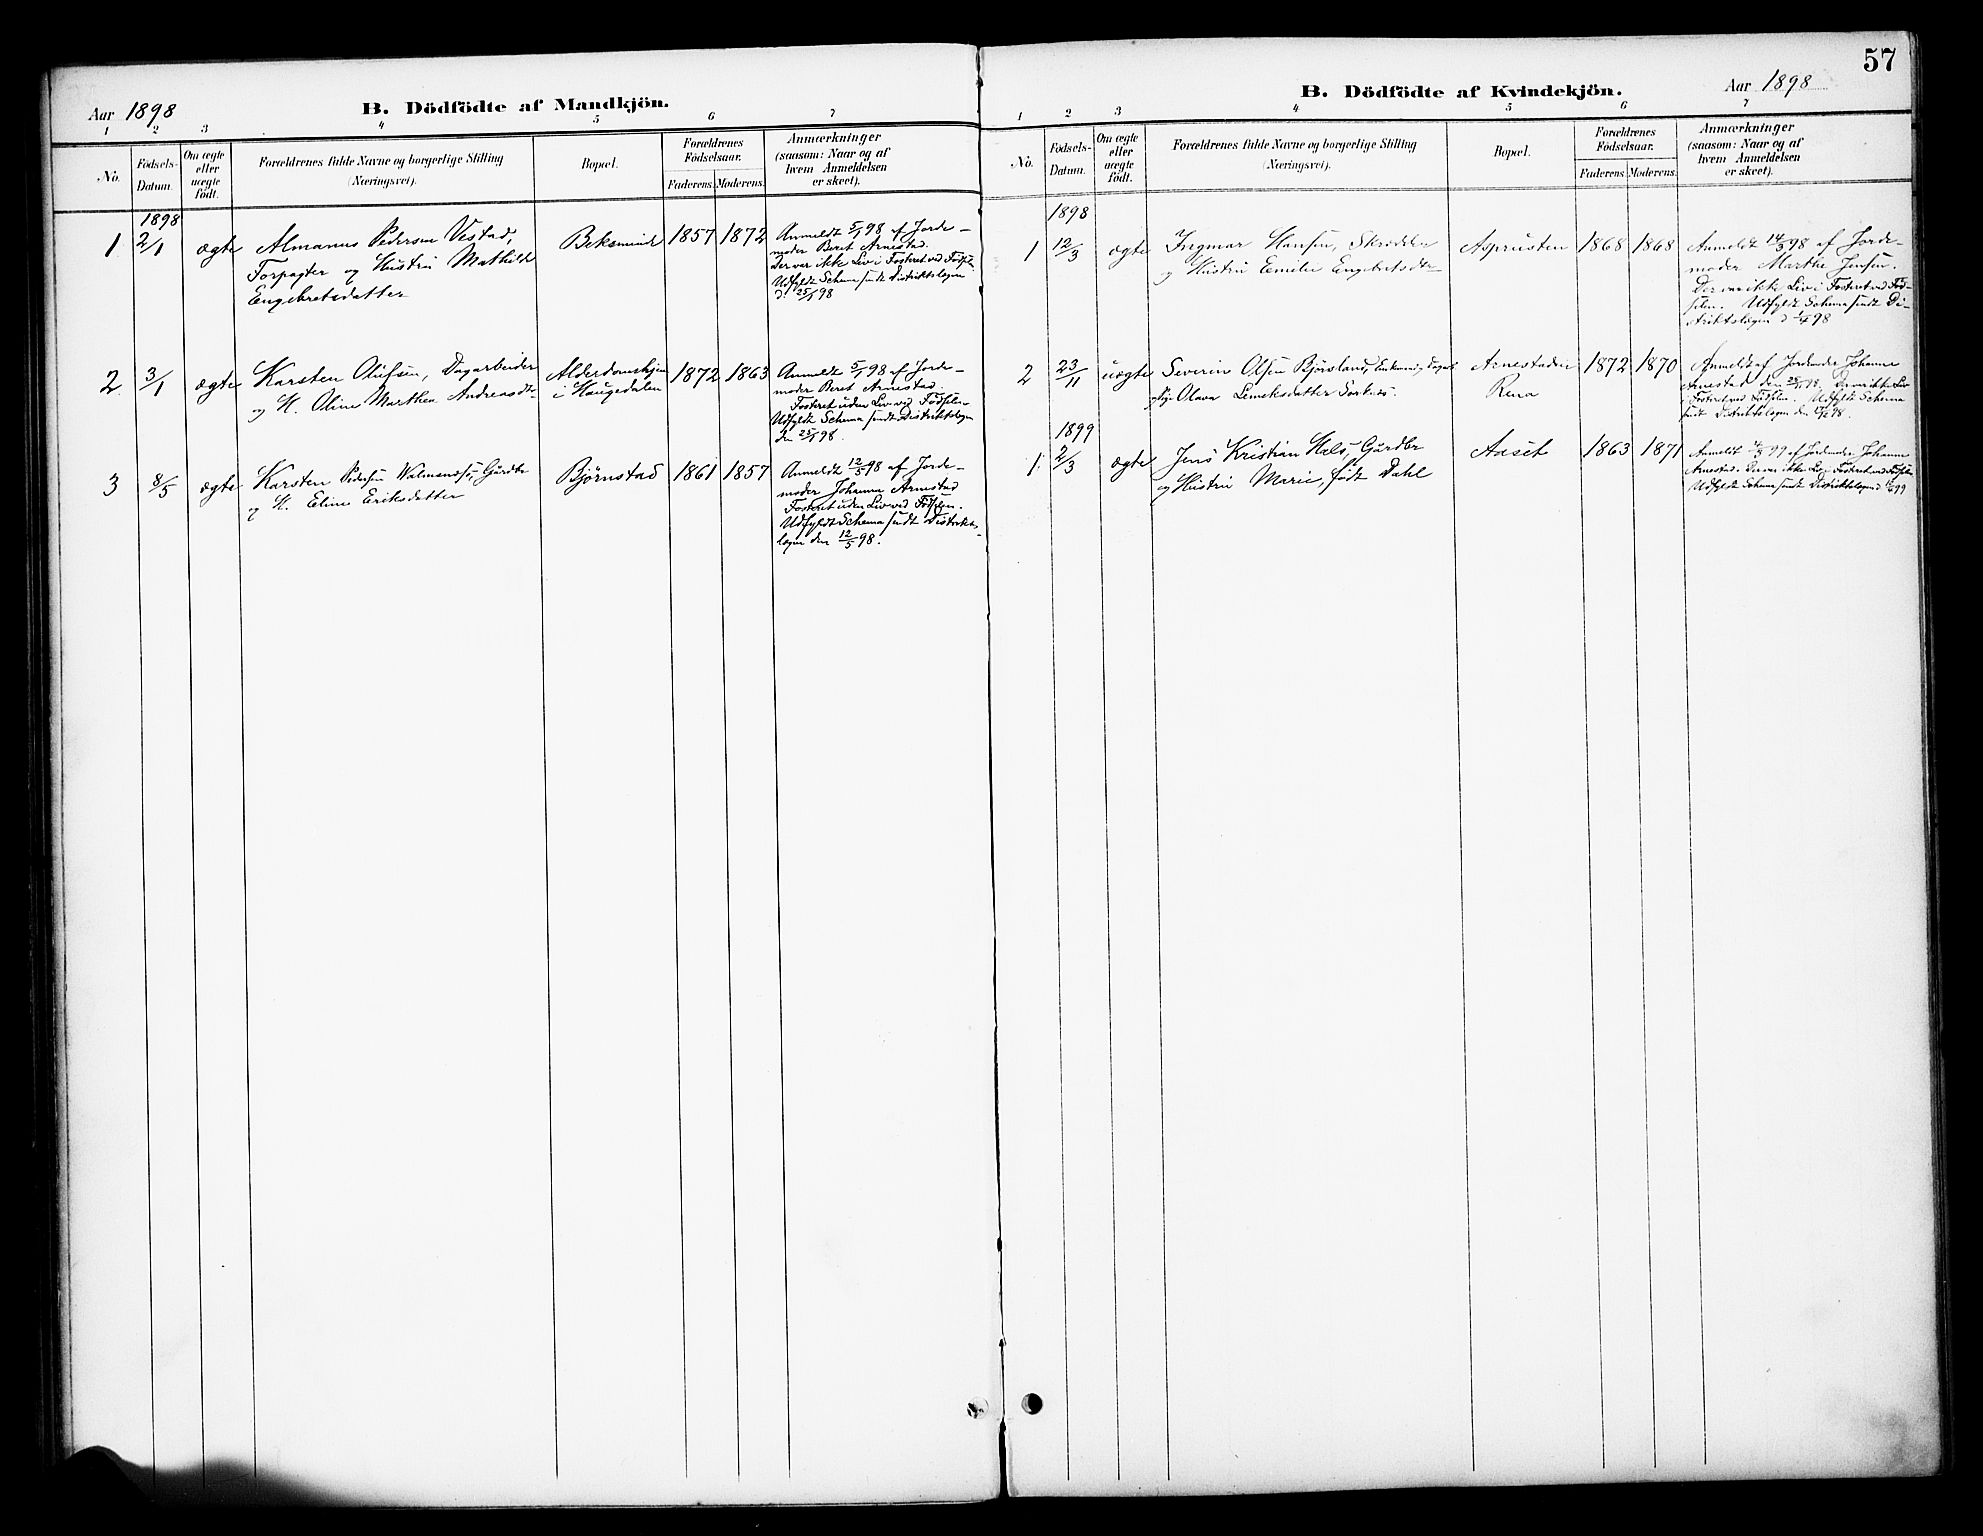 57
Aar 1898
B. Dödfödte af Mandkjön.
1 2 3 4 5 6 7
No.
Födsels-
Datum.
Om ægte
eller
uægte
födt.
Forældrenes fulde Navne og borgerlige Stilling
(Næringsvei).
Bopæl.
Forældrenes
Födselsaar.
Faderens. Moderens.
Anmærkninger
(saasom: Naar og af
hvem Anmeldelsen
er skeet).
1898
1 2/1 ægte
Almanus Pedersen Vestad,
Forpagter og Hustru Mathilde
Engebretsdatter
1857 1872
Anmeldt 5/1 98 af Jorde-
moder Beret Arnestad.
Der var ikke Liv i Fosteret ved Födslen
Udfyldt Schema sendt Distriktslægen
d. 25/1 98
2 3/1 ægte
Karsten Olufsen, Dagarbeider
og H. Oline Marthea Andreasdtr
Alderdomshjem
i Haugedalen
1872 1863
Anmeldt 5/1 98 af Jorde-
moder Beret Arnestad.
Fosteret uden Liv ved Födslen
Udfyldt Schema sendt Distriktslægen
den 25/1 98.
3 8/5 ægte
Karsten Pedersen Gurdbr
og H. Eline Eriksdatter
Bjørnstad
1861 1857
Anmeldt 12/5 98 af Jorde-
moder Johanna Arnestad
Fosteret uden Liv ved Födslen.
Udfyldt Schema sendt Distrikts-
lægen den 12/5 98.
B. Dödfödte af Kvindekjön.
Aar 1898
1 2 3 4 5 6 7
No.
Födsels-
Datum.
Om ægte
eller
uægte
födt.
Forældrenes fulde Navne og borgerlige Stilling
(Næringsvei).
Bopæl.
Forældrenes
Födselsaar.
Faderens. Moderens.
Anmærkninger
(saasom: Naar og af
hvem Anmeldelsen
er skeet).
1898
1 12/3 ægte
Ingmar Hansen, Skrædder
og Hustru Emilie Engebretsdtr
Asprusten
1868 1868
Anmeldt 14/3 98 af Jorde-
moder Marthe Jensen.
Der var ikke Liv i Fosteret ved Föd-
slen. Udfyldt Schema sendt Di-
striktslægen d 98
2 23/11 uægte
Severin Olsen Bjørsland,
Pige Olava
Arnestadeie
Rena
1872 1870
Anmeldt af Jordemoder Johanne
Arnestad den 25/11 98. Der var ikke Liv
i Fosteret ved Födslen. Udfyldt Schema
sendt Distriktslægen den 98.
1899
1. 2/3 ægte
Jens Kristian Hels, Gurdbr
og Hustru Marie, født Dahl
Aaset
1863 1871
Anmeldt 99 af Jordemoder Johanne
Arnestad. Der var ikke Liv i Fosteret ved Födslen
Udfyldt Schema sendt Distriktslægen d 99